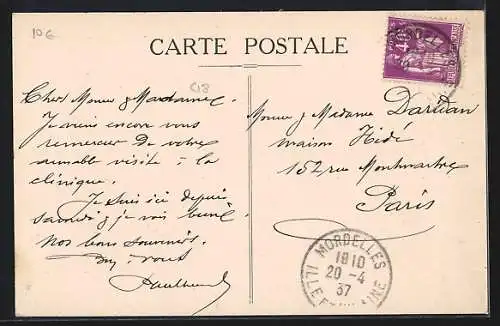 10€
CARTE POSTALE
C18
Cher Monsr & Madame,
Je viens encore vous
remercier de votre
aimable visite à la
clinique.
Je suis ici depuis
samedi & je vais bien.
Nos bons souvenirs.
à vous
Monsr & Madame Dardan
maison Hidé
152 rue Montmartre
Paris
POSTES
40c
MORDELLES
1910
20-4
37
ILLE ET VILAINE